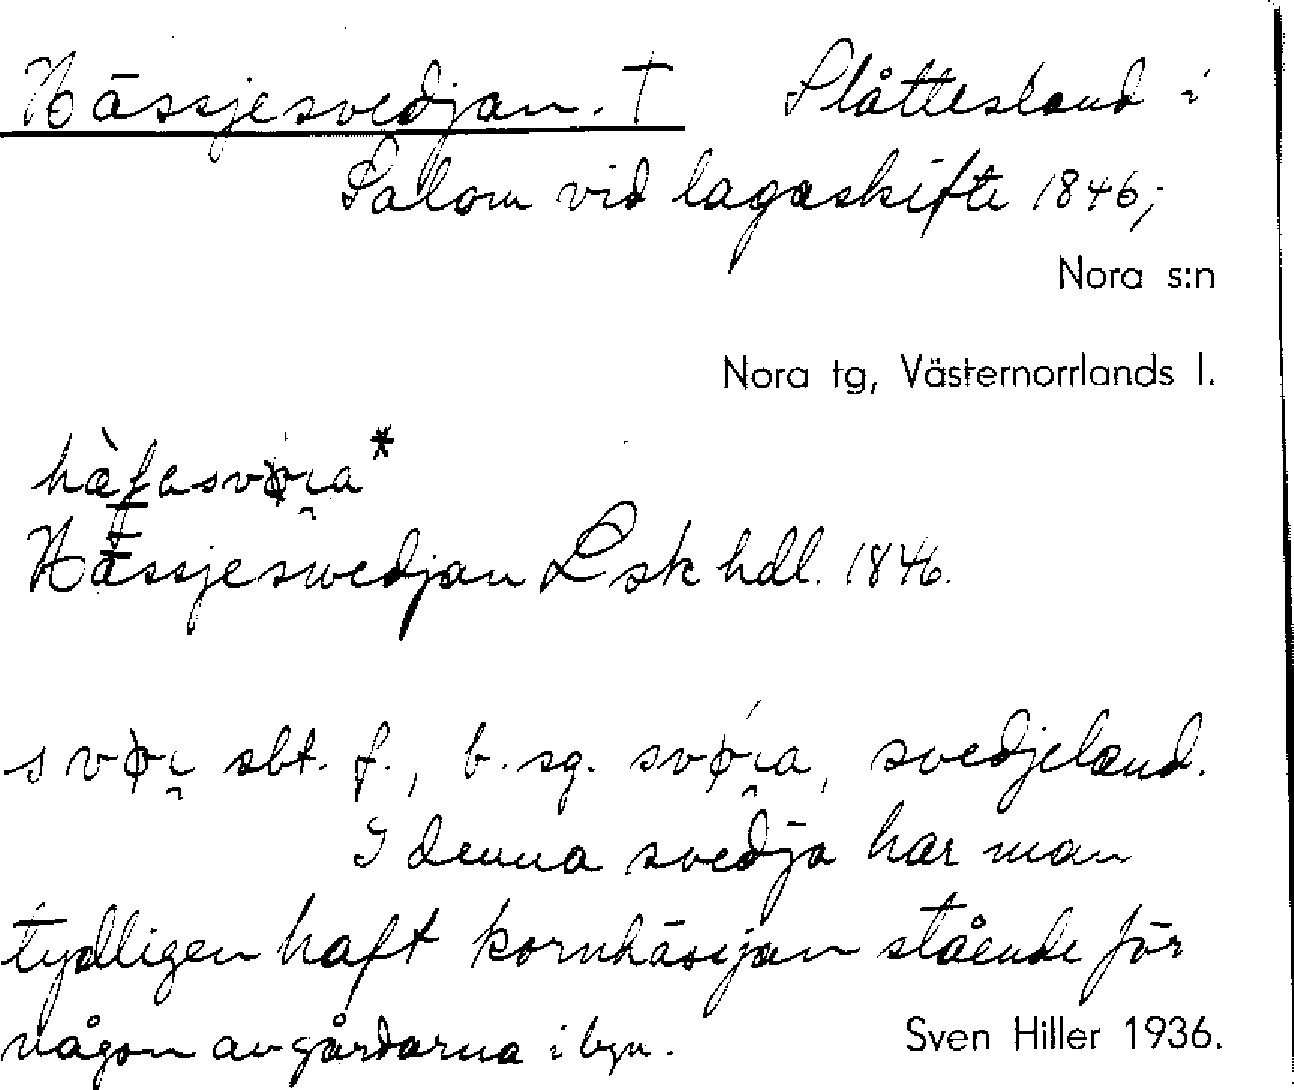 Hässjesvedjan. † Slåttesland i
Salom vid lagaskifte 1846;
Nora s:n
Nora tg, Västernorrlands l.
Hässjeswedjan Lsk hdl. 1846.
sbt. f., b. sg. svedjeland.
I denna svedja har man
tydligen haft kornhässjan stående för
någon av gårdarna i byn.
Sven Hiller 1936.